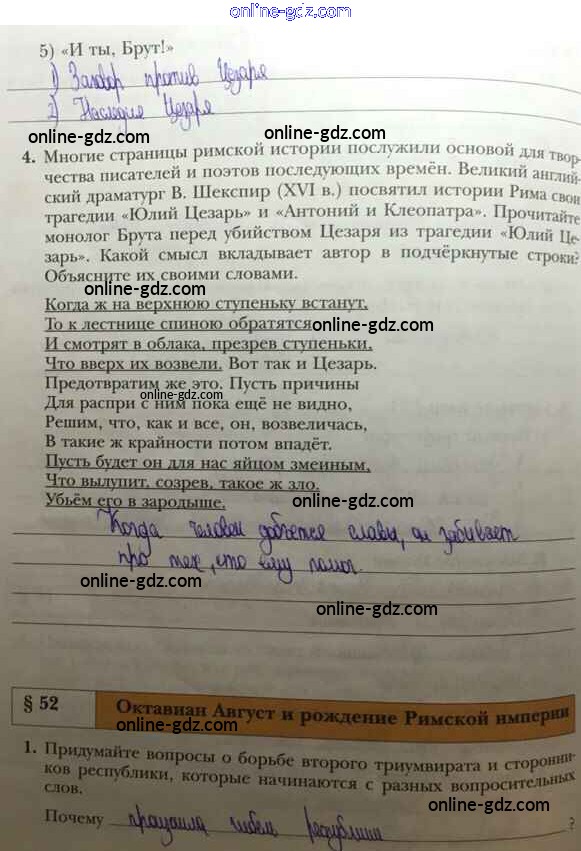 online-gdz.com
5) «И ты, Брут!»
1) Заговор против Цезаря
2) Наследия Цезаря
online-gdz.com online-gdz.com
4. Многие страницы римской истории послужили основой для твор-
чества писателей и поэтов последующих времён. Великий англий-
ский драматург В. Шекспир (XVI в.) посвятил истории Рима свои
трагедии «Юлий Цезарь» и «Антоний и Клеопатра». Прочитайте
монолог Брута перед убийством Цезаря из трагедии «Юлий Це-
зарь». Какой смысл вкладывает автор в подчёркнутые строки?
Объясните их своими словами.
online-gdz.com
Когда ж на верхнюю ступеньку встанут,
То к лестнице спиною обратятся
online-gdz.com
И смотрят в облака, презрев ступеньки,
Что вверх их возвели. Вот так и Цезарь.
Предотвратим же это. Пусть причины
online-gdz.com
Для распри с ним пока ещё не видно,
Решим, что, как и все, он, возвеличась,
В такие ж крайности потом впадёт.
Пусть будет он для нас яйцом змеиным,
Что вылупит, созрев, такое ж зло.
Убьём его в зародыше.
online-gdz.com
Когда человек добьётся славы, он забывает
про тех, кто ему помог.
online-gdz.com
online-gdz.com
§ 52 Октавиан Август и рождение Римской империи
online-gdz.com
1. Придумайте вопросы о борьбе второго триумвирата и сторонни-
ков республики, которые начинаются с разных вопросительных
слов.
online-gdz.com
Почему республики ?
online-gdz.com